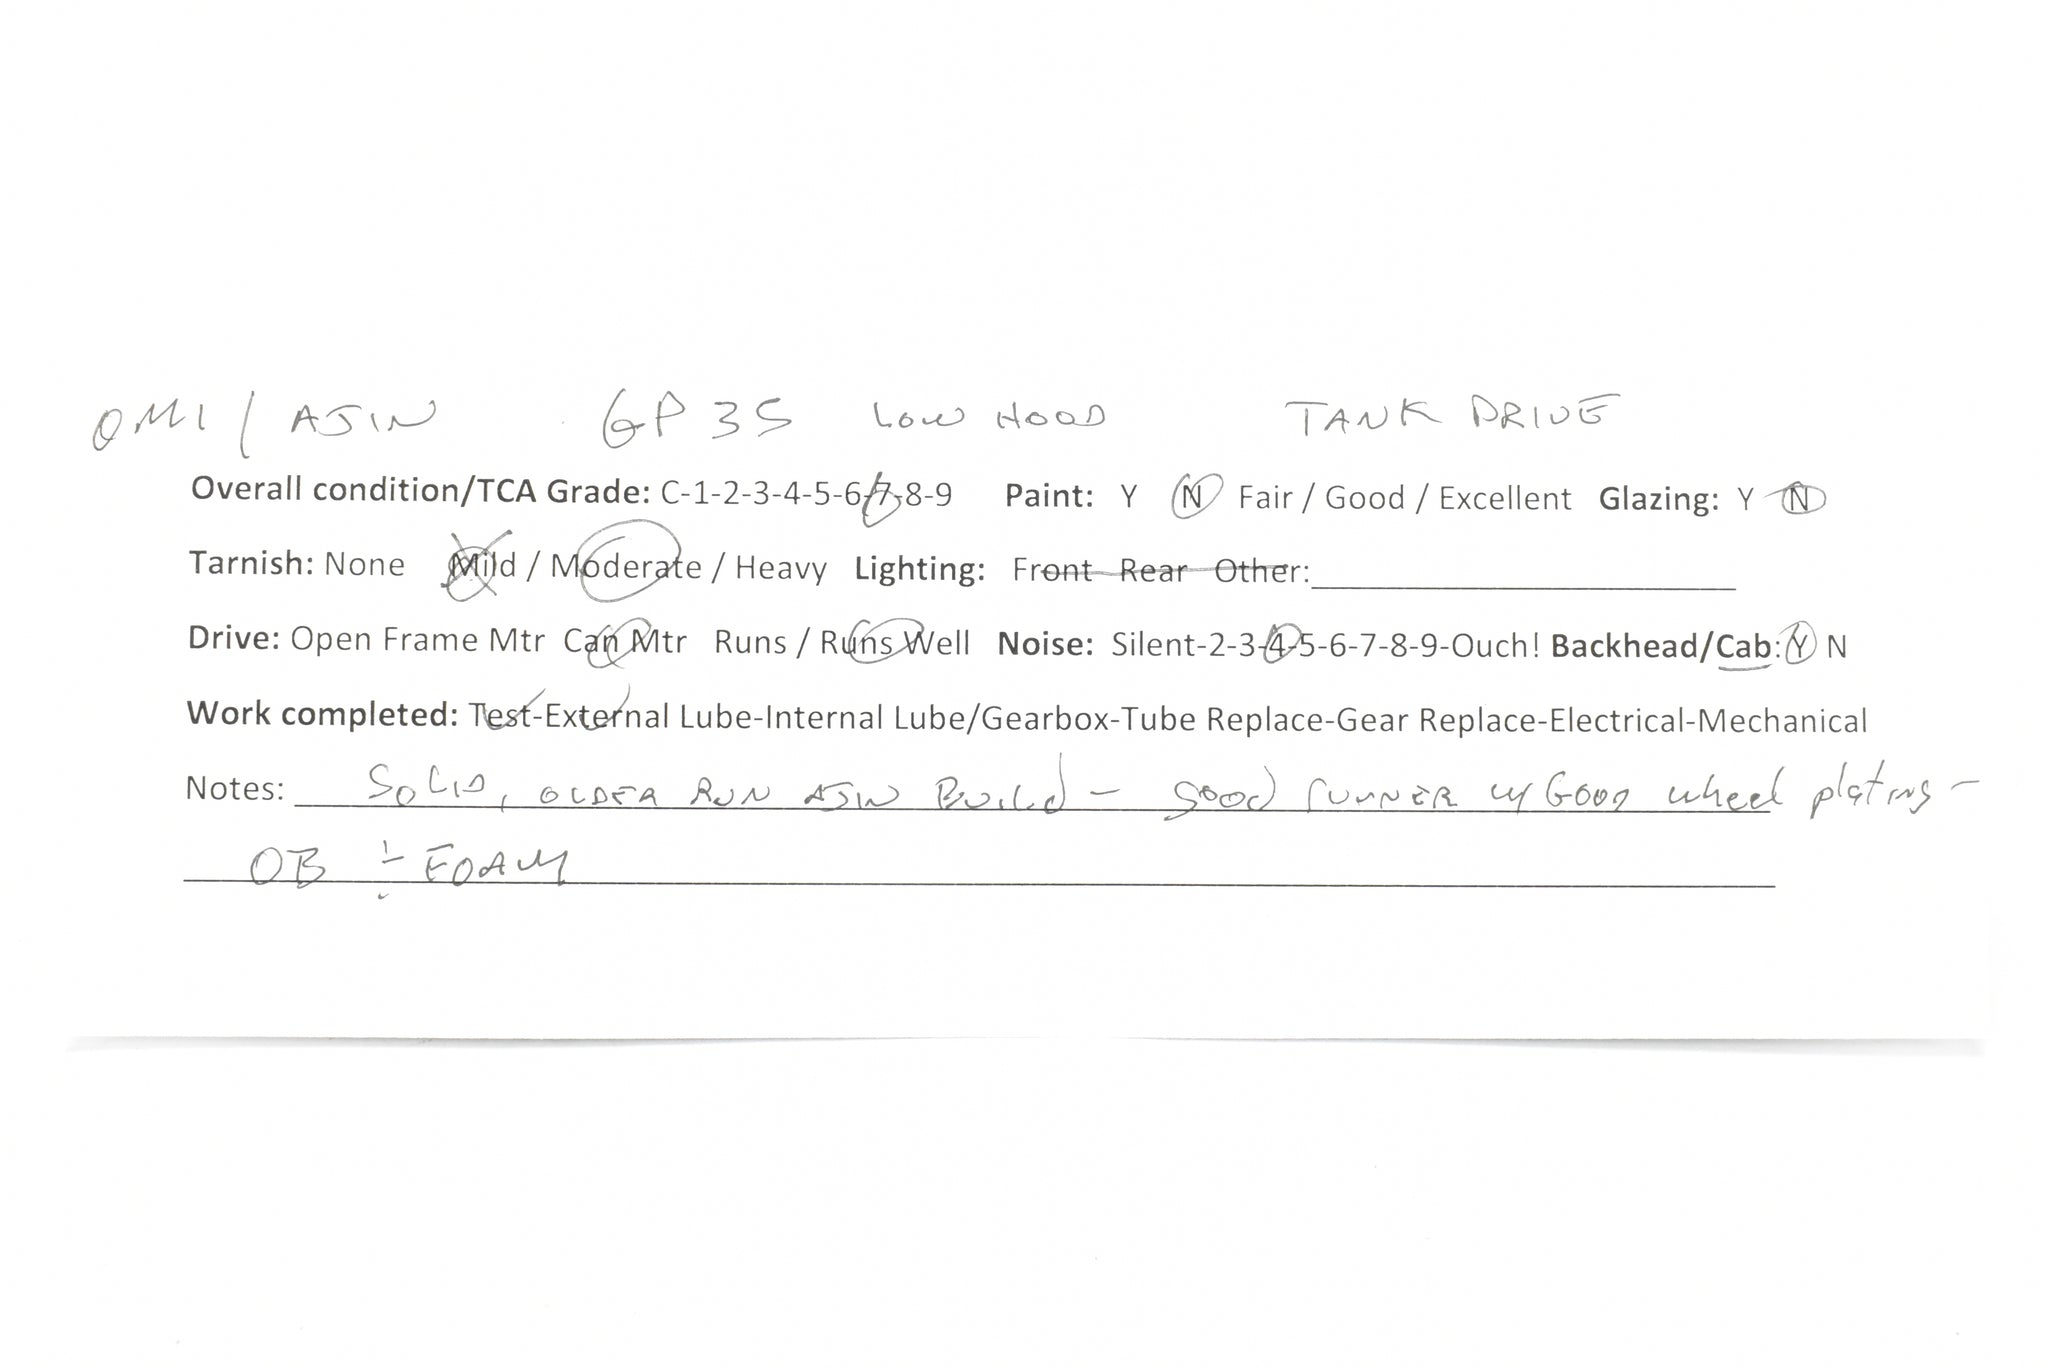 OMI / AJIN GP 35 LOW HOOD TANK DRIVE
Overall condition/TCA Grade: C-1-2-3-4-5-6-7-8-9 Paint: Y N Fair / Good / Excellent Glazing: Y N
Tarnish: None Mild / Moderate / Heavy Lighting: Front Rear Other:
Drive: Open Frame Mtr Can Mtr Runs / Runs Well Noise: Silent-2-3-4-5-6-7-8-9-Ouch! Backhead/Cab: Y N
Work completed: Test-External Lube-Internal Lube/Gearbox-Tube Replace-Gear Replace-Electrical-Mechanical
Notes: SOLID, OLDER RUN AJIN BUILD - good runnER w/ GOOD wheel plating -
OB + FOAM